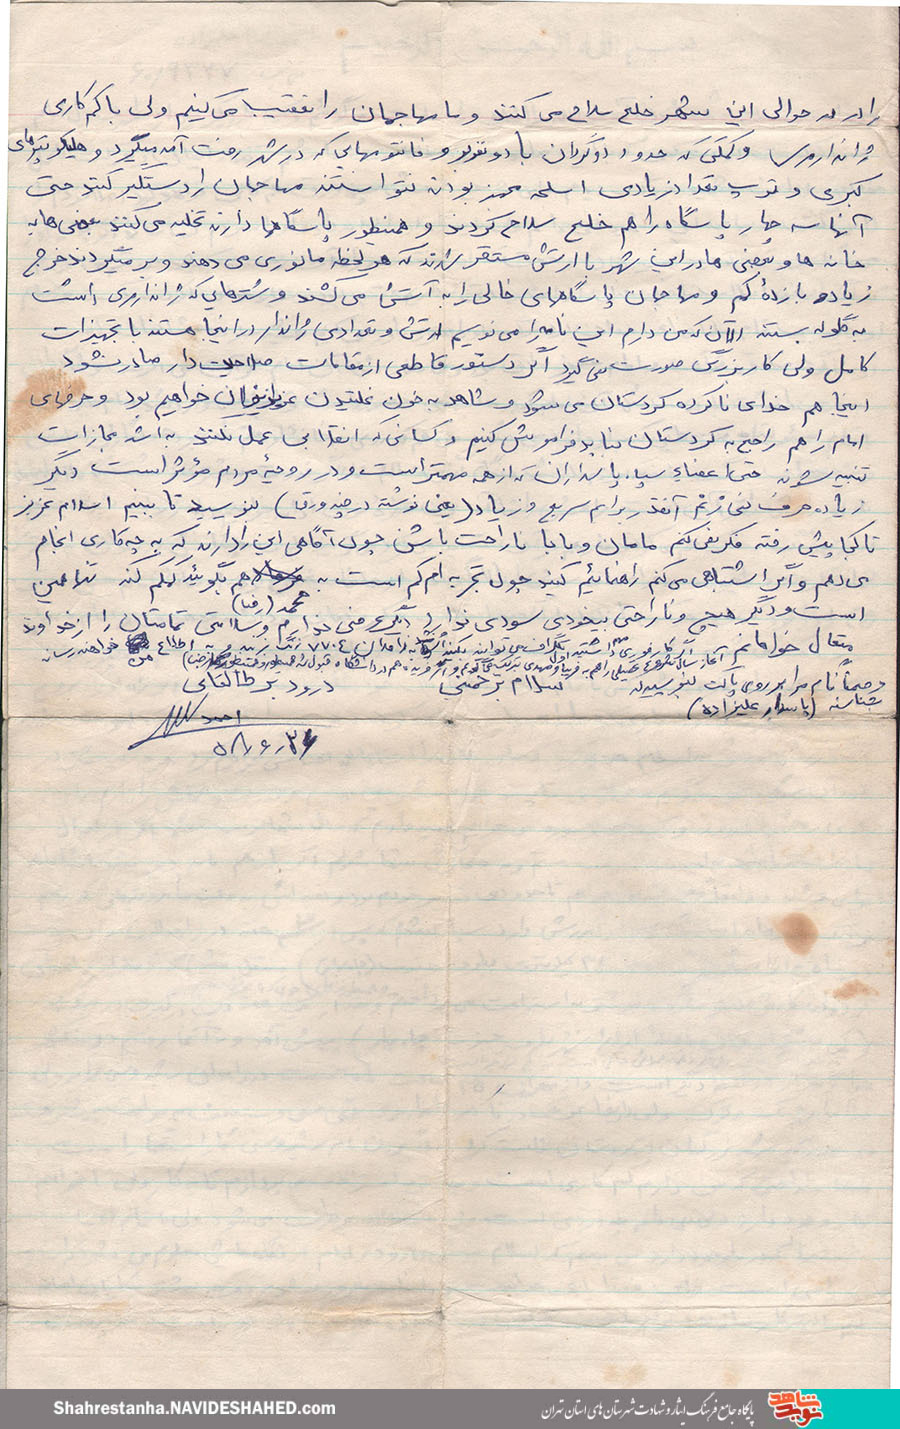 را در در حوالی این شهر خلیج سلاح می کنند و ما مهاجمان را تعقیب می کنیم ولی با کم کاری
ژاندارمری و کمکی که حدود دو گردان با دو تقویم و فانتومهایی که در شهر رفت آمد میگیرد و هلیکوپترهای
کبری و توپ تعداد زیادی اسلحه مجهز بودند نتوانستند مهاجمان را دستگیر کنند حتی
آنها سه چهار پاسگاه را هم خلیج سلاح کردند و همینطور پاسگاهها دارند تخلیه می کنند بعضی ها به
خانه ها و بعضی ها در این شهر با ارتش مستقر شدند که هر لحظه مانوری می دهند و بر میگردند خرج
زیاد و بازدهٔ کم و مهاجمان پاسگاههای خالی را به آتش می کشند و سنترهایی که ژاندارمری است
به گلوله بستند الآن که من دارم این نامه را می نویسم ارتش و تعدادی ژاندارم در اینجا هستند با تجهیزات
کامل ولی کار بزرگی صورت نمی گیرد اگر دستور قاطعی از مقامات صلاحیت دار صادر نشود
اینجا هم خدای ناکرده کردستان می شود و شاهد به خون غلتیدن عزیزانمان خواهیم بود و حرفهای
امام را هم راجع به کردستان نباید فراموش کنیم و کسانی که انقلابی عمل نکنند به اشد مجازات
تنبیه شوند حتی اعضاء سپاه پاسداران که از همه مهمتر است و در روحیهٔ مردم مؤثر است دیگر
زیاد حرف نمی زنم آنقدر برایم سریع و زیاد (یعنی نوشته در چند ورق) بنویسید تا ببینم اسلام عزیز
تا کجا پیش رفته فکر نمی کنم مامان و بابا ناراحت باشن چون آگاهی این را دارند که به چه کاری انجام
می دهم و اگر اشتباهی می کنم راهنمائیم کنید چون تجربه ام کم است به محمد (رضا) هم بگوئید کمکم کند تا همین
است و دیگر هیچی و ناراحتی بیخودی سودی ندارد دیگر عرضی ندارم و سلامتی تمامتان را از خداوند
متعال خواهانم
اگر کار فوری هم داشتید تلگراف می توانید بکنید
آغاز سال تحصیلی را هم به فریبا و مهدی تبریک می گویم
خواهند رساند
و ضمناً نام مرا بر روی پاکت بنویسید که
شناسند (پاسدار علیزاده)
سلام بر خمینی
درود بر طالقانی
احمد
۵۸/۶/۲۶
Shahrestanha.NAVIDESHAHED.com
پایگاه جامع فرهنگ ایثار و شهادت شهرستان های استان تهران
نوید شاهد